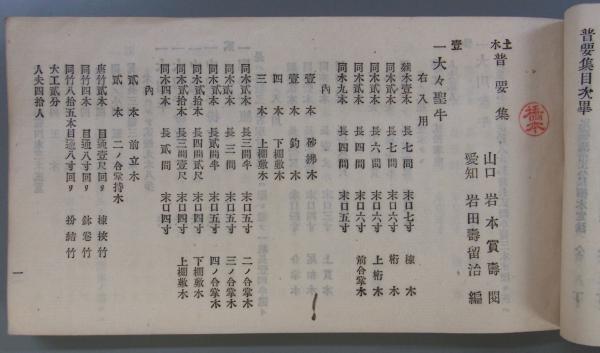 普要集目次畢
土木普要集
山口 岩本賞壽 閲
愛知 岩田壽留治 編
壹
一大々聖牛
右入用
雑木壹本 長七間 末口七寸 棟木
同木貳本 長七間 末口六寸 桁木
同木貳本 長六間 末口六寸 上桁木
同木貳本 長四間 末口六寸 前合掌木
同木九本 長四間 末口五寸
內
壹本 砂拂木
壹本 釣木
四本 下棚敷木
三本 上棚敷木
同木貳本 長三間半 末口五寸 二ノ合掌木
同木貳本 長三間 末口五寸 三ノ合掌木
同木貳本 長貳間半 末口五寸 四ノ合掌木
同木貳拾本 長四間 末口四寸 下棚敷木
同木貳拾本 長三間壹尺 末口四寸 上棚敷木
同木四本 長貳間 末口四寸
內
貳本 前立木
貳本 二ノ合掌持木
唐竹貳本 目通壹尺回リ 棟挾竹
同竹四本 目通八寸回リ 鉢卷竹
同竹八拾五本 目通八寸回リ 粉結竹
大工貳分
人夫四拾人
一
橋本